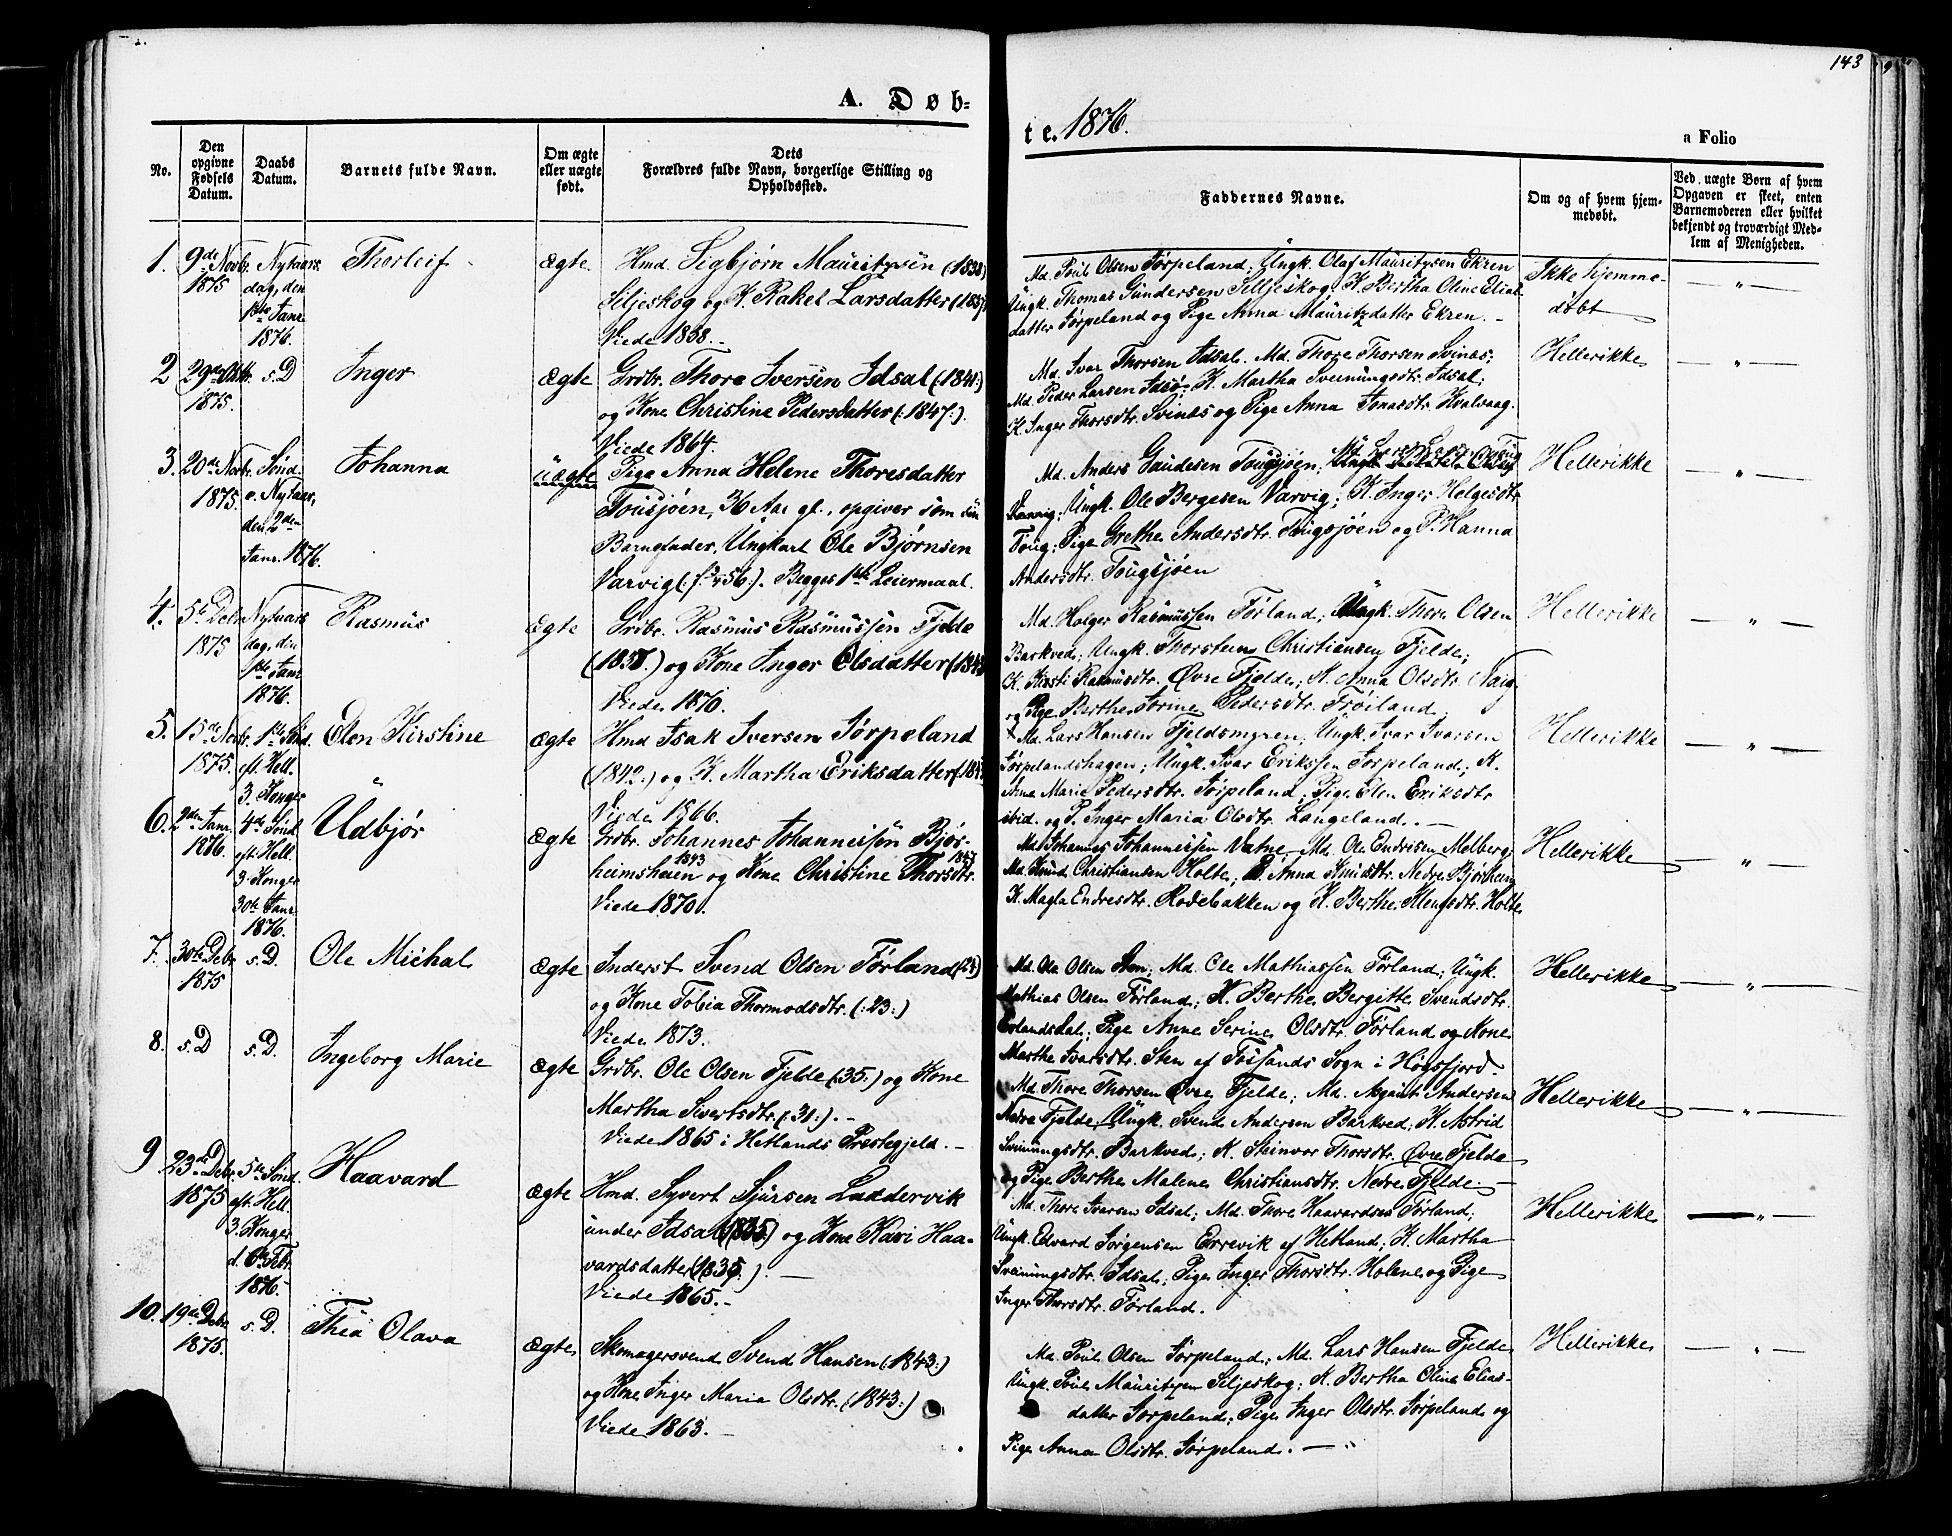 143
A. Døb-
te. 1876.
a Folio
No.
Den opgivne Fødsels Datum.
Daabs Datum.
Barnets fulde Navn.
Om ægte eller uægte født.
Dets Forældres fulde Navn, borgerlige Stilling og Opholdssted.
Faddernes Navne.
Om og af hvem hjemmedøbt.
Ved uægte Børn af hvem Opgaven er skeet, enten Barnemoderen eller hvilket bekjendt og troværdigt Medlem af Menigheden.
1. 9de Novbr. 1875
Nytaarsdag, den 1ste Janr. 1876.
Thorleif
Ægte.
Hmd. Sigbjørn Mauritzsen (1833)
Siljeskog og K. Rakel Larsdatter
Viede 1858.
Md. Poul Olsen Jørpeland; Ungk. Olaf Mauritzsen Ekren
Ungk. Thomas Gundersen Silljeskog; K. Bertha Oline Elias-
datter Jørpeland og Pige Anna Mauritzdatter Ekren.
Ikke hjemme-
døbt
2 29de Oktbr. 1875.
s. D
Inger
Ægte
Grdbr. Thore Iversen Idsal (1841)
og Kone Christine Pedersdatter (:1847:).
Viede 1864.
Md. Ivar Thorsen Idsal. Md. Thore Thorsen Svinæs;
Md. Peder Larsen Idsø; K. Martha Sveinungsdtr. Idsal;
K. Inger Thorsdtr. Svinæs og Pige Anna Jonasdtr. Kvalvaag.
Hellerikke
3. 20de Novbr. 1875.
Sønd. e. Nytaar, den 2den Janr. 1876.
Johanna
Uægte
Pige Anna Helene Thoresdatter
Tousjøen, 36 Aar gl., opgiver som sin
Barnefader, Ungkarl Ole Bjørnsen
Varvig (f. 1456:). Begges 1ste Leiermaal.
Md. Anders Gaudesen Tougsjøen;
Ungk. Ole Bergesen Varvig; K. Inger Helgesdtr.
Toug; Pige Grethe Andersdtr. Tougsjøen og P. Hanna
Andersdtr. Tougsjøen
Hellerikke
4. 5te Debr. 1875
Nytaarsdag, den 1ste Janr. 1876.
Rasmus
Ægte
Grdbr. Rasmus Rasmussen Fjelde
og Kone Inger Olsdatter
Viede 1870.
Md. Holger Rasmussen Førland; Ungk. Thore Olsen
Barkved; Ungk. Thorstein Christiansen Fjelde;
K. Kirsti Rasmusdtr. Øvre Fjelde; K. Anna Olsdtr. Taig
og Pige Berthe Jorine Pedersdtr. Frøiland.
Hellerikke
5. 15de Novbr. 1875.
1ste Sønd. eft. Hell. 3. Konger
Elen Kirstine
Ægte
Hmd Isak Iversen Jørpeland
(1842.) og K. Martha Eriksdatter
Viede 1866.
Md. Lars Hansen Fjeldsmyren; Ungk. Ivar Ivarsen
Jørpelandshagen; Ungk. Ivar Eriksen Jørpeland; K.
Anna Marie Pedersdtr. Jørpeland; Pige Elen Eriksdtr
ibid. og P. Inger Maria Olsdtr. Langeland.
Hellerikke
6. 2den Janr. 1876.
4de Sønd. eft. Hell. 3 Konger 30te Janr. 1876.
Udbjør
Ægte
Grdbr. Johannes Johannessen Bjør-
heimsheien 1843 og Kone Christine Thorsdtr.
Viede 1870.
Md. Johannes Johannessen Vatne, Md. Ole Endresen Melberg
Md. Knud Christiansen Holte; K. Anna Knudsdtr. Nedre Bjørheim
K. Magla Endresdtr. Rødebakken og K. Berthe Klengsdtr. Holte.
Hellerikke
7. 30te Debr. 1875
s. D.
Ole Michal
Ægte
Inderst Svend Olsen Førland
og Kone Tobia Thormodsdtr. (:23:)
Viede 1873.
Md. Ola Olsen Sten; Md. Ole Mathiassen Førland; Ungk.
Mathias Olsen Førland; K. Berthe Bergitte Svendsdtr.
Erlandsdal; Pige Anne Serine Olsdtr. Førland og Kone
Marthe Ivarsdtr. Sten af Fossands Sogn i Høgsfjord.
Hellerikke
8. s. D
s. D.
Ingeborg Marie
Ægte
Grdbr. Ole Olsen Fjelde (35.) og Kone
Martha Sivertsdtr. (31:).
Viede 1865 i Hetlands Prestegjeld.
Md. Thore Thorsen Øvre Fjelde; Md. Andersen
Nedre Fjelde; Ungk. Svend Andersen Barkved; K. Astrid
Sveinungsdtr. Barkved; K. Steinvor Thorsdtr. Øvre Fjelde
og Pige Berthe Malene Christiansdtr. Nedre Fjelde.
Hellerikke
9 23de Debr. 1875
5te Sønd. eft. Hell. 3. Konger d. 6te Febr. 1876.
Haavard
Ægte
Hmd. Syvert Sjursen Laddervik
under Idsal (1835) og Kone Kari Haa-
vardsdatter (1835.).
Viede 1865.
Md. Thore Ivarsen Idsal; Md. Thore Haavardsen Førland;
Ungk. Edvard Jørgensen Errevik af Hetland; K. Martha
Sveinungsdtr. Idsal; Pige Inger Thorsdtr. Holene og Pige
Inger Thorsdtr. Førland.
Hellerikke
10. 19de Debr. 1875.
s. D.
Thea Olava
Ægte
Skomagersvend Svend Hansen (1843:)
og Kone Inger Maria Olsdtr. (1843:)
Viede 1863.
Md. Poul Olsen Jørpeland; Md. Lars Hansen Fjelde
Ungk. Poul Mauritzen Siljeskog; K. Bertha Oline Elias-
datter Jørpeland; Pige Inger Olsdtr. Jørpeland og
Pige Anna Olsdtr. Jørpeland.
Hellerikke